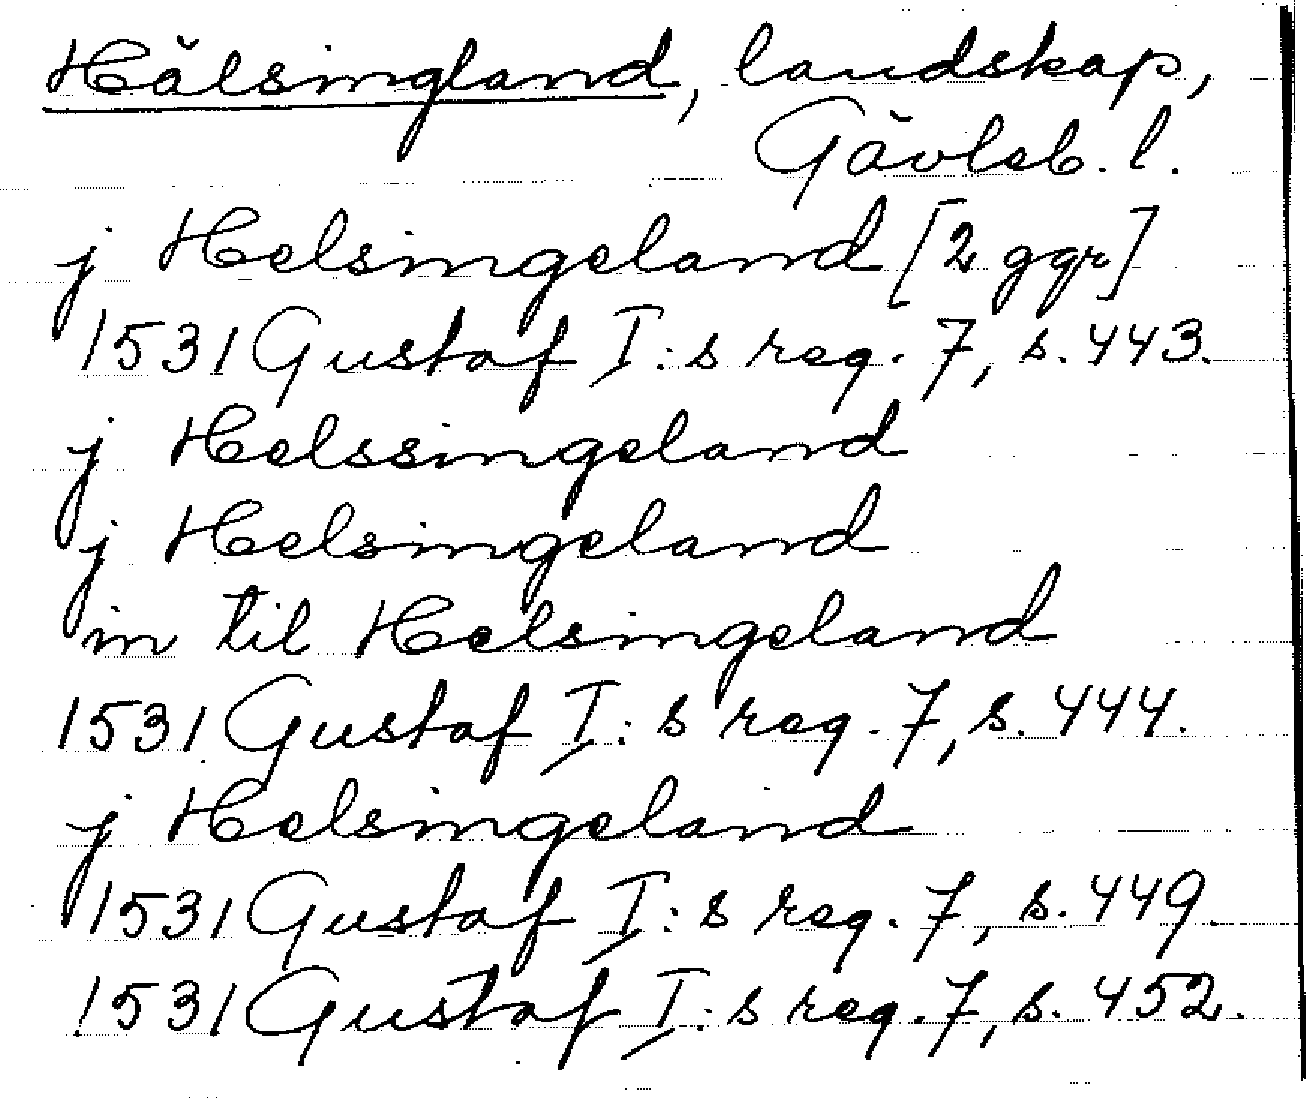 Hälsingland, landskap,
Gävleb. l.
j Helsingeland [2 ggr]
1531 Gustaf I:s reg. 7, s. 443.
j Helssingeland
j Helsingeland
in til Helsingeland
1531 Gustaf I:s reg. 7, s. 444.
j Helsingeland
1531 Gustaf I:s reg. 7, s. 449.
1531 Gustaf I:s reg. 7, s. 452.